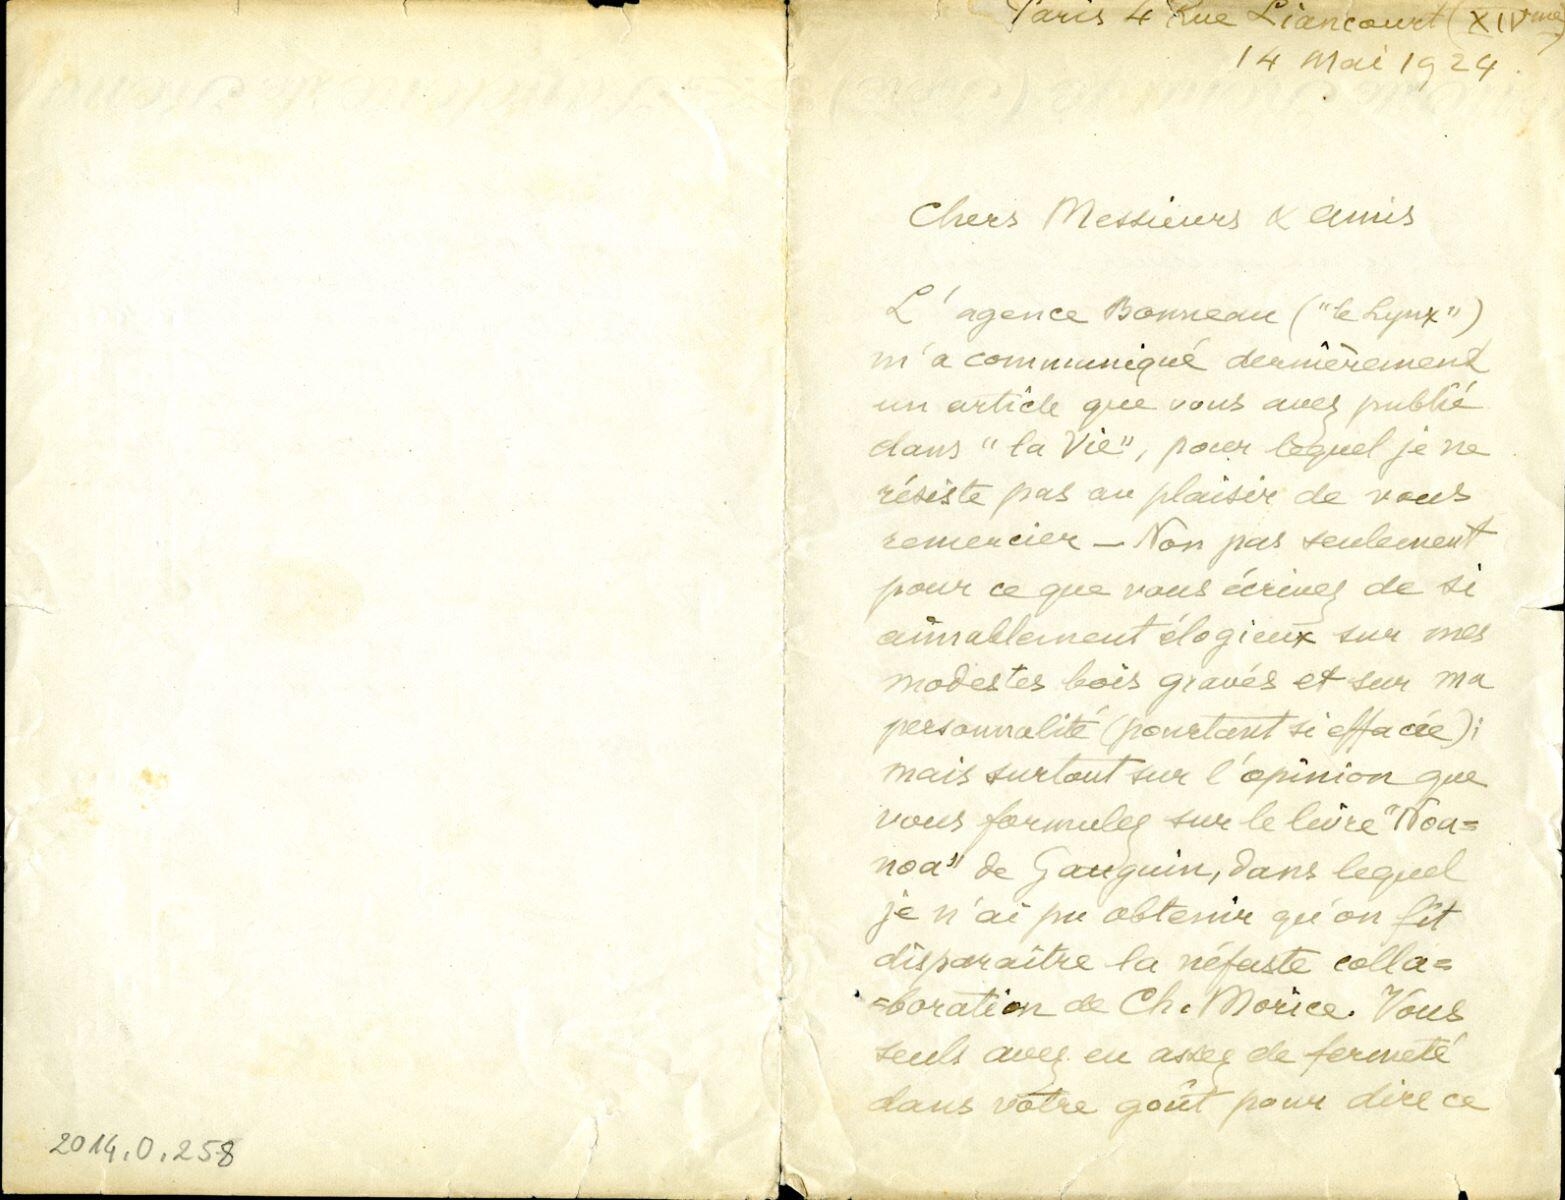 Paris 4 Rue Liancourt (XIVme)
14 Mai 1924.
Chers Messieurs & amis
L'agence Bonneau ("le Lynx")
m'a communiqué dernièrement
un article que vous avez publié
dans "la Vie", pour lequel je ne
résiste pas au plaisir de vous
remercier — Non pas seulement
pour ce que vous écrivez de si
aimablement élogieux sur mes
modestes bois gravés et sur ma
personnalité (pourtant si effacée);
mais surtout sur l'opinion que
vous formulez sur le livre "Noa=
noa" de Gauguin, dans lequel
je n'ai pu obtenir qu'on fît
disparaître la néfaste colla=
=boration de Ch. Morice. Vous
seuls avez eu assez de fermeté
dans votre goût pour dire ce
2014.0.258